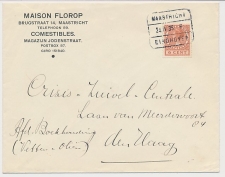 MAISON FLOROP
BRUGSTRAAT 1A, MAASTRICHT
TELEPHOON 59.
COMESTIBLES.
MAGAZIJN JODENSTRAAT.
POSTBOX 67.
MAASTRICHT
EINDHOVEN
6 CENT
Crisis-Zuivel-Centrale
Laan van Meerdervoort
84
Afd. Boekhouding
(Vetten-Oliën)
den Haag